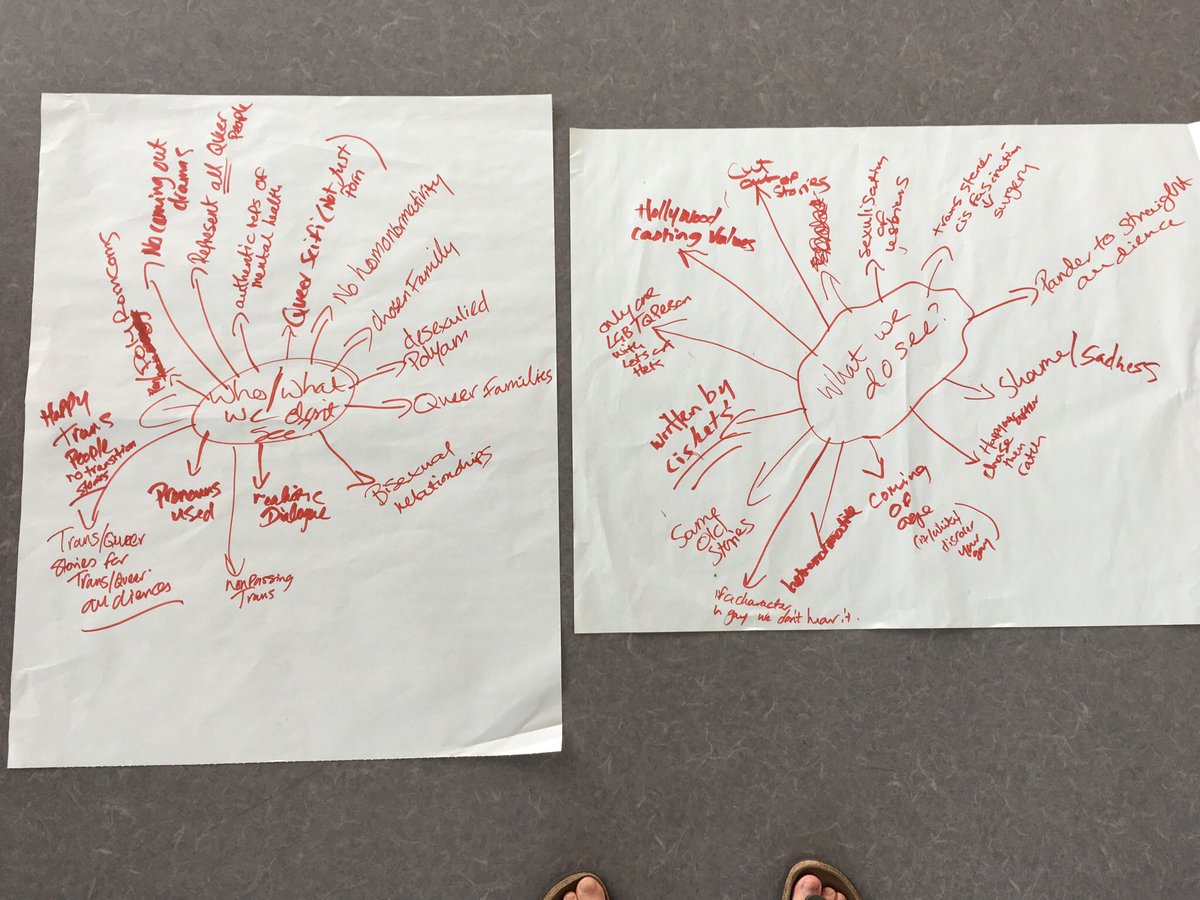 Who/what
we don't
see
Romcoms
No coming out
drama
Represent all Queer
People
authentic reps of
mental health
Queer scifi (not just
porn)
No homonormativity
chosen Family
desexulied
Polyam
Queer Families
Bisexual
relationships
realistic
Dialogue
nonpassing
Trans
Pronouns
used
Trans/Queer
Stories for
Trans/Queer
audiences
Happy
Trans
People
no transition
stories
What we
do see?
Hollywood
casting values
Cut
out of
Stories
sexualisation
of
lesbians
trans stories
cis fascination
surgery
Pander to straight
audience
Shame/Sadness
Happy
chase
then
catch
coming
of
age
your
gay)
if a character
is gay we don't hear it.
Same
old
Stories
written by
cishets
only one
LGBTQ Person
with